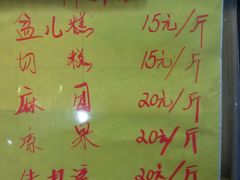 盆儿糕 15元/斤
切糕 15元/斤
麻团 20元/斤
凉果 20元/斤
20元/斤